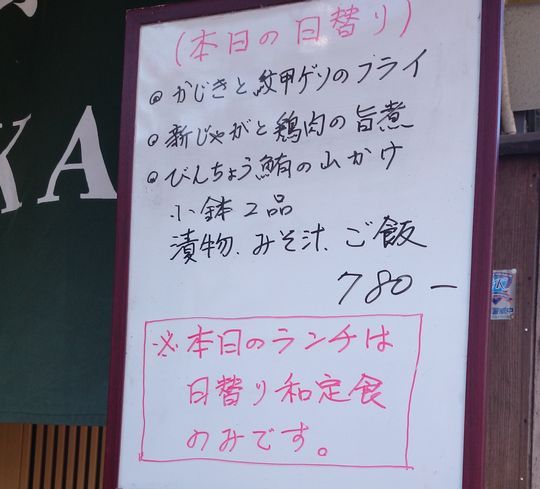 (本日の日替り)
◎ かじきと紋甲ゲソのフライ
◎ 新じゃがと鶏肉の旨煮
◎ びんちょう鮪の山かけ
小鉢2品
漬物、みそ汁、ご飯
780-
※本日のランチは
日替り和定食
のみです。
KA